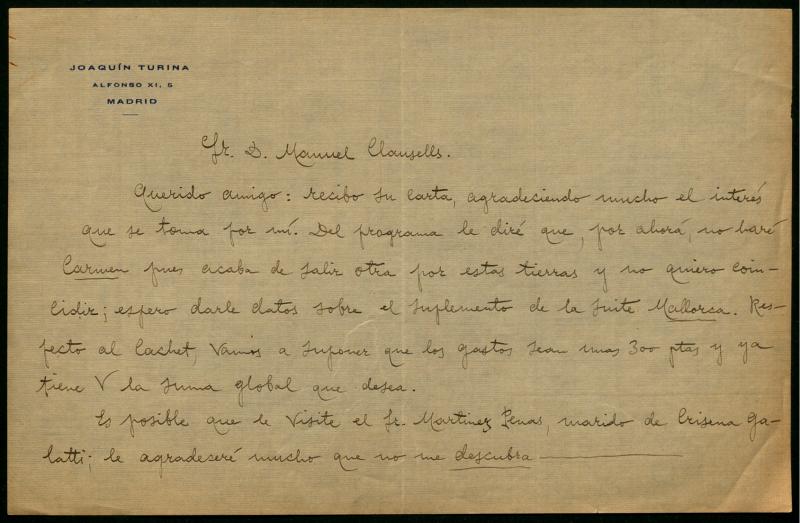 JOAQUÍN TURINA
ALFONSO XI, 5
MADRID
Sr. D. Manuel Clausells.
Querido amigo: recibo su carta, agradeciendo mucho el interés
que se toma por mí. Del programa le diré que, por ahorá, no haré
Carmen pues acaba de salir otra por estas tierras y no quiero coin-
cidir; espero darle datos sobre el suplemento de la suite Mallorca. Res-
pecto al Cachet, Vamos a suponer que los gastos sean unas 300 ptas y ya
tiene V la suma global que desea.
Es posible que le Visite el Sr. Martinez Penas, marido de Crisena Ga-
latti; le agradeseré mucho que no me descubra